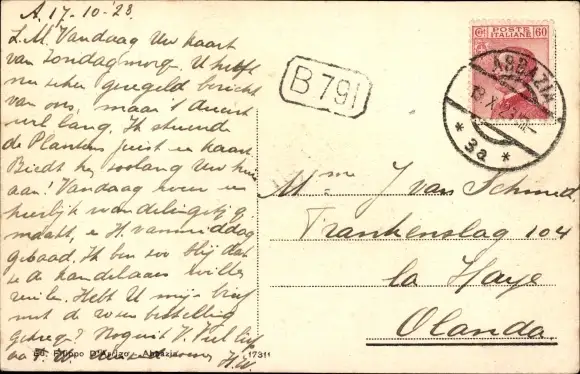 A. 17-10-'23.
L. M. Vandaag Uw kaart
van Zondagmorg. U hebt
nu zeker geregeld bericht
van ons, maar 't duurt
wel lang. Ik stuurde
de Plantens juist een kaart.
Biedt hij zoolang Uw huis
aan! Vandaag weer een
heerlijk wandeling
gemaakt, H. vanmiddag
gebaad. Ik ben zoo blij dat
ze de kandelaars
ruilen. Hebt U mijn brief
met de bestelling
gehad? Nogmaals V. Veel liefs
B 791
POSTE ITALIANE
60
ABBAZIA
18 X 23
* 3a *
Mme J van Schmid
Frankenslag 104
la Haye
Olanda
Ed. Filippo D'Arrigo - Abbazia
17311